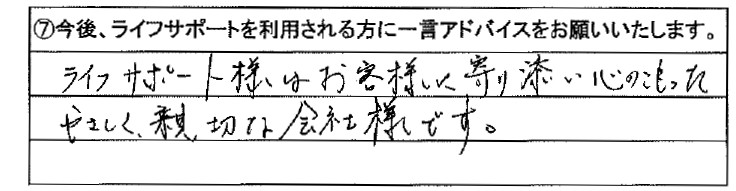 ⑦今後、ライフサポートを利用される方に一言アドバイスをお願いいたします。
ライフサポート様はお客様に寄り添い心のこもった
やさしく、親切な会社様です。